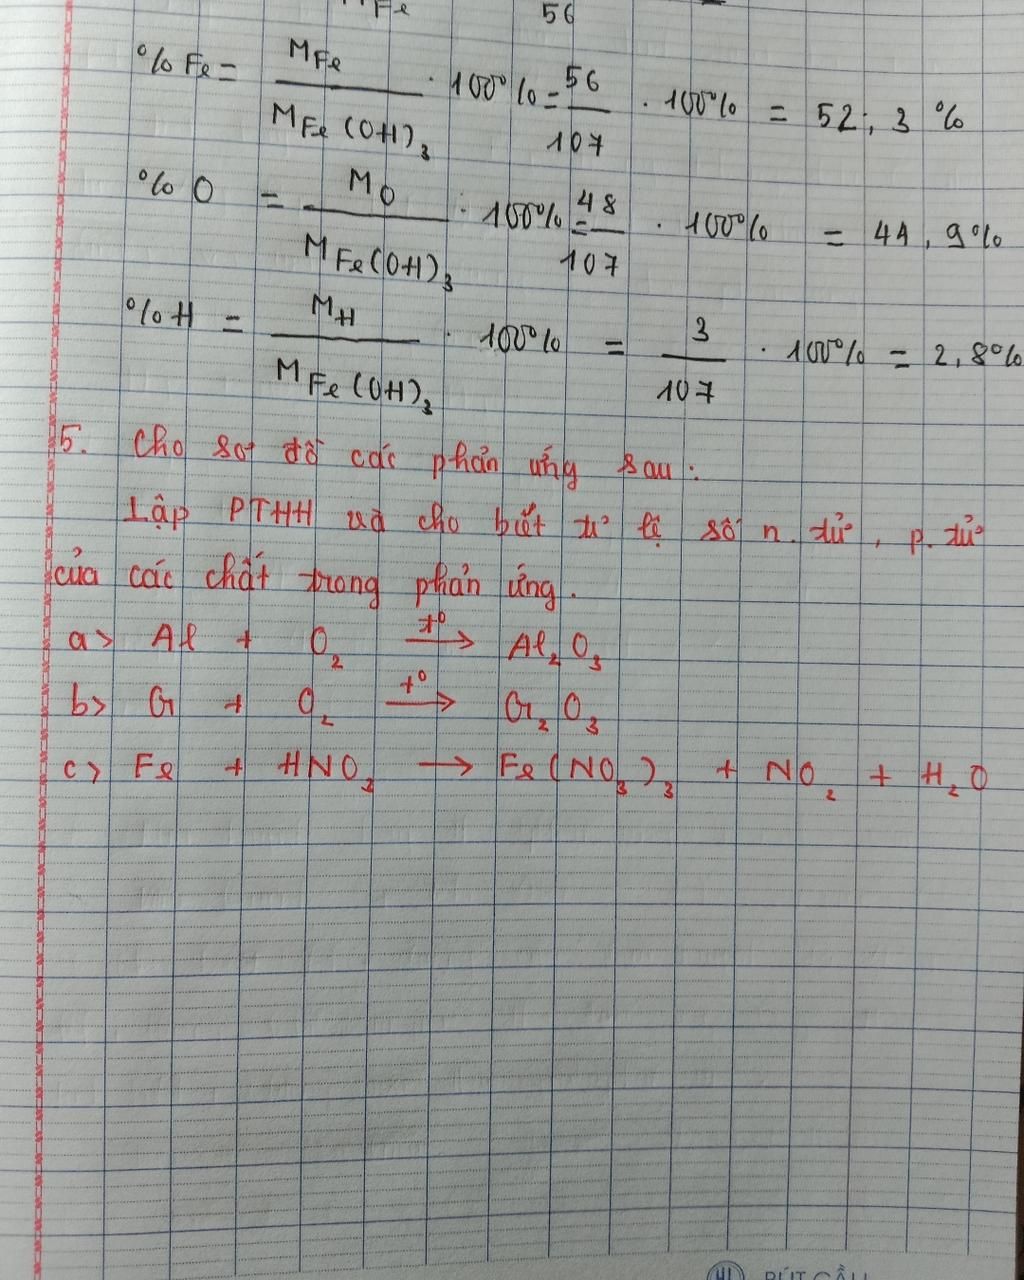 M Fe 56
% Fe = M Fe / M Fe(OH)₃ . 100% = 56 / 107 . 100% = 52,3 %
% O = M O / M Fe(OH)₃ . 100% = 48 / 107 . 100% = 44,9%
% H = M H / M Fe(OH)₃ . 100% = 3 / 107 . 100% = 2,8%
5. Cho sơ đồ các phản ứng sau:
Lập PTHH và cho biết tỉ lệ số n.tử, p.tử
của các chất trong phản ứng.
a> Al + O₂ t° → Al₂O₃
b> Cr + O₂ t° → Cr₂O₃
c> Fe + HNO₃ → Fe(NO₃)₃ + NO₂ + H₂O
BÚT